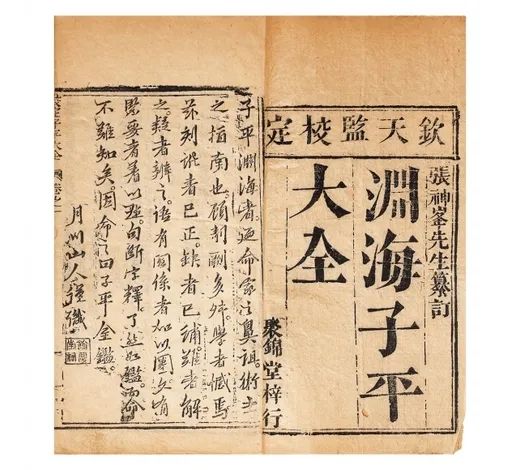 欽天監校定
張神峯先生纂訂
淵海子平
大全
聚錦堂梓行
子平淵海者迺命家奧術士
之指南也顧翻多舛學者憾焉
茲刻訛者已正缺者已補難者解
之疑者辨之諸有關係者加以圈
緊要者署以句斷字釋了然如鑑而命
不難知矣因命之曰子平全鑑
月川山人識